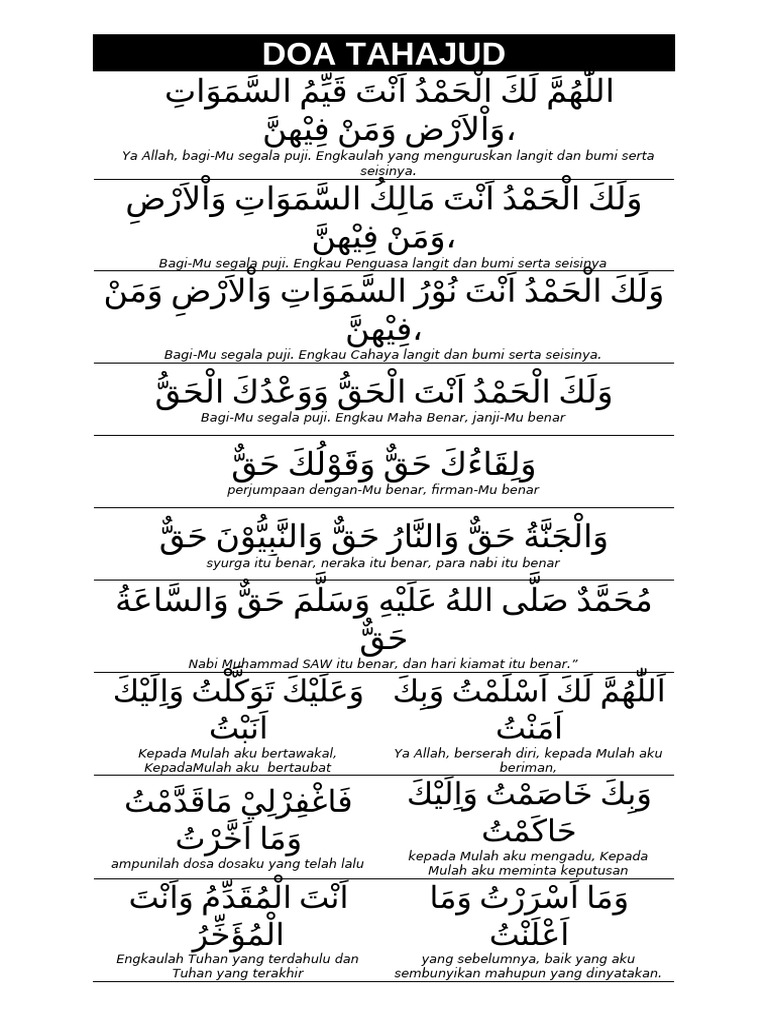 DOA TAHAJUD
اللّٰهُمَّ لَكَ الْحَمْدُ اَنْتَ قَيِّمُ السَّمَوَاتِ
وَاْلاَرْضِ وَمَنْ فِيْهِنَّ،
Ya Allah, bagi-Mu segala puji. Engkaulah yang menguruskan langit dan bumi serta
seisinya.
وَلَكَ الْحَمْدُ اَنْتَ مَالِكُ السَّمَوَاتِ وَاْلاَرْضِ
وَمَنْ فِيْهِنَّ،
Bagi-Mu segala puji. Engkau Penguasa langit dan bumi serta seisinya
وَلَكَ الْحَمْدُ اَنْتَ نُوْرُ السَّمَوَاتِ وَاْلاَرْضِ وَمَنْ
فِيْهِنَّ،
Bagi-Mu segala puji. Engkau Cahaya langit dan bumi serta seisinya.
وَلَكَ الْحَمْدُ اَنْتَ الْحَقُّ وَوَعْدُكَ الْحَقُّ
Bagi-Mu segala puji. Engkau Maha Benar, janji-Mu benar
وَلِقَاءُكَ حَقٌّ وَقَوْلُكَ حَقٌّ
perjumpaan dengan-Mu benar, firman-Mu benar
وَالْجَنَّةُ حَقٌّ وَالنَّارُ حَقٌّ وَالنَّبِيُّوْنَ حَقٌّ
syurga itu benar, neraka itu benar, para nabi itu benar
مُحَمَّدٌ صَلَّى اللهُ عَلَيْهِ وَسَلَّمَ حَقٌّ وَالسَّاعَةُ
حَقٌّ
Nabi Muhammad SAW itu benar, dan hari kiamat itu benar.”
اَللّٰهُمَّ لَكَ اَسْلَمْتُ وَبِكَ
اَمَنْتُ
Ya Allah, berserah diri, kepada Mulah aku
beriman,
وَعَلَيْكَ تَوَكَّلْتُ وَاِلَيْكَ
اَنَبْتُ
Kepada Mulah aku bertawakal,
KepadaMulah aku  bertaubat
وَبِكَ خَاصَمْتُ وَاِلَيْكَ
حَاكَمْتُ
kepada Mulah aku mengadu, Kepada
Mulah aku meminta keputusan
فَاغْفِرْلِيْ مَاقَدَّمْتُ
وَمَا اَخَّرْتُ
ampunilah dosa dosaku yang telah lalu
وَمَا اَسْرَرْتُ وَمَا
اَعْلَنْتُ
yang sebelumnya, baik yang aku
sembunyikan mahupun yang dinyatakan.
اَنْتَ الْمُقَدِّمُ وَاَنْتَ
الْمُؤَخِّرُ
Engkaulah Tuhan yang terdahulu dan
Tuhan yang terakhir